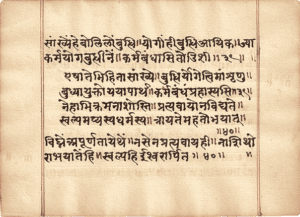 सांख्येहेबोलिलीबुद्धि॥योगीहीबुद्धिआयिक॥ज्या
कर्मयोगबुद्धीनें॥कर्मबंधासितोडिशी॥३९॥
एषातेभिहितासांख्ये॥बुद्धिर्योगेत्विमांशृणु
बुध्यायुक्तोययापार्थ॥कर्मबंधंप्रहास्यसि॥३९॥
नेहाभिक्रमनाशोस्ति॥प्रत्यवायोनविद्यते॥
स्वल्पमप्यस्यधर्मस्य॥त्रायतेमहतोभयात्॥
॥४०॥
विघ्नेंअपूर्णतायेथें॥नसेनप्रत्यवायही॥नाशिथो
राभयातेंहि॥स्वल्पहिईश्वरार्पित॥४०॥